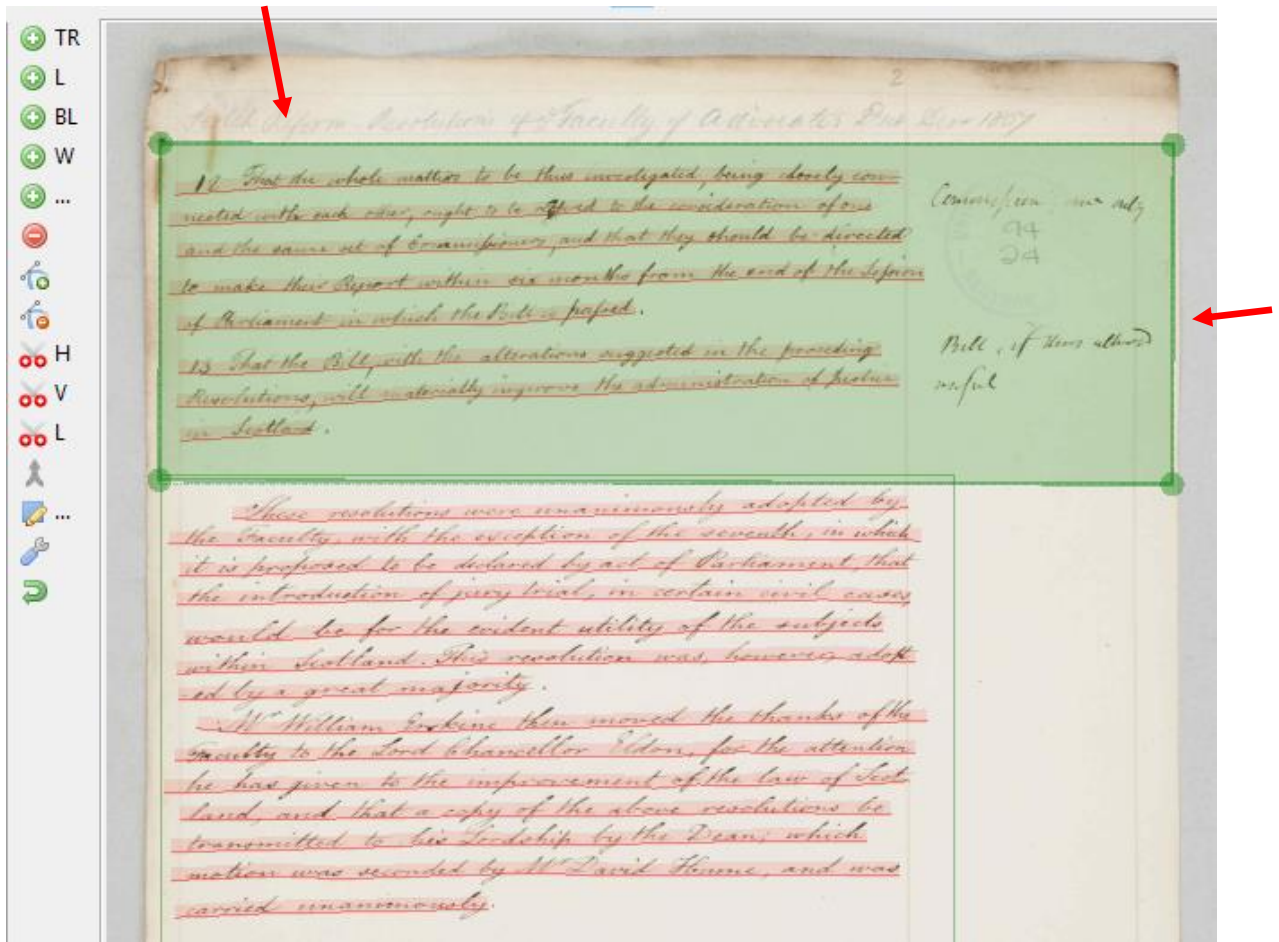 TR
L
BL
W
...
H
V
L
...
2
Reform Resolutions of Faculty of Advocates
12 That the whole matters to be thus investigated, being closely con-
nected with each other, ought to be to the consideration of one
and the same set of Commissioners, and that they should be directed
to make their Report within six months from the end of the Session
of Parliament in which the Bill is passed.
Commission one only
94
24
13 That the Bill, with the alterations suggested in the preceding
Resolutions, will materially improve the administration of Justice
in Scotland.
Bill, if thus altered
useful
These resolutions were unanimously adopted by
the Faculty, with the exception of the seventh, in which
it is proposed to be declared by act of Parliament, that
the introduction of jury trial, in certain civil cases,
would be for the evident utility of the subjects
within Scotland. This resolution was, however, adopt
-ed by a great majority.
Mr William Erskine then moved the thanks of the
Faculty to the Lord Chancellor Eldon, for the attention
he has given to the improvement of the law of Scot-
land, and that a copy of the above resolutions be
transmitted to his Lordship by the Dean; which
motion was seconded by Mr David Hume, and was
carried unanimously.